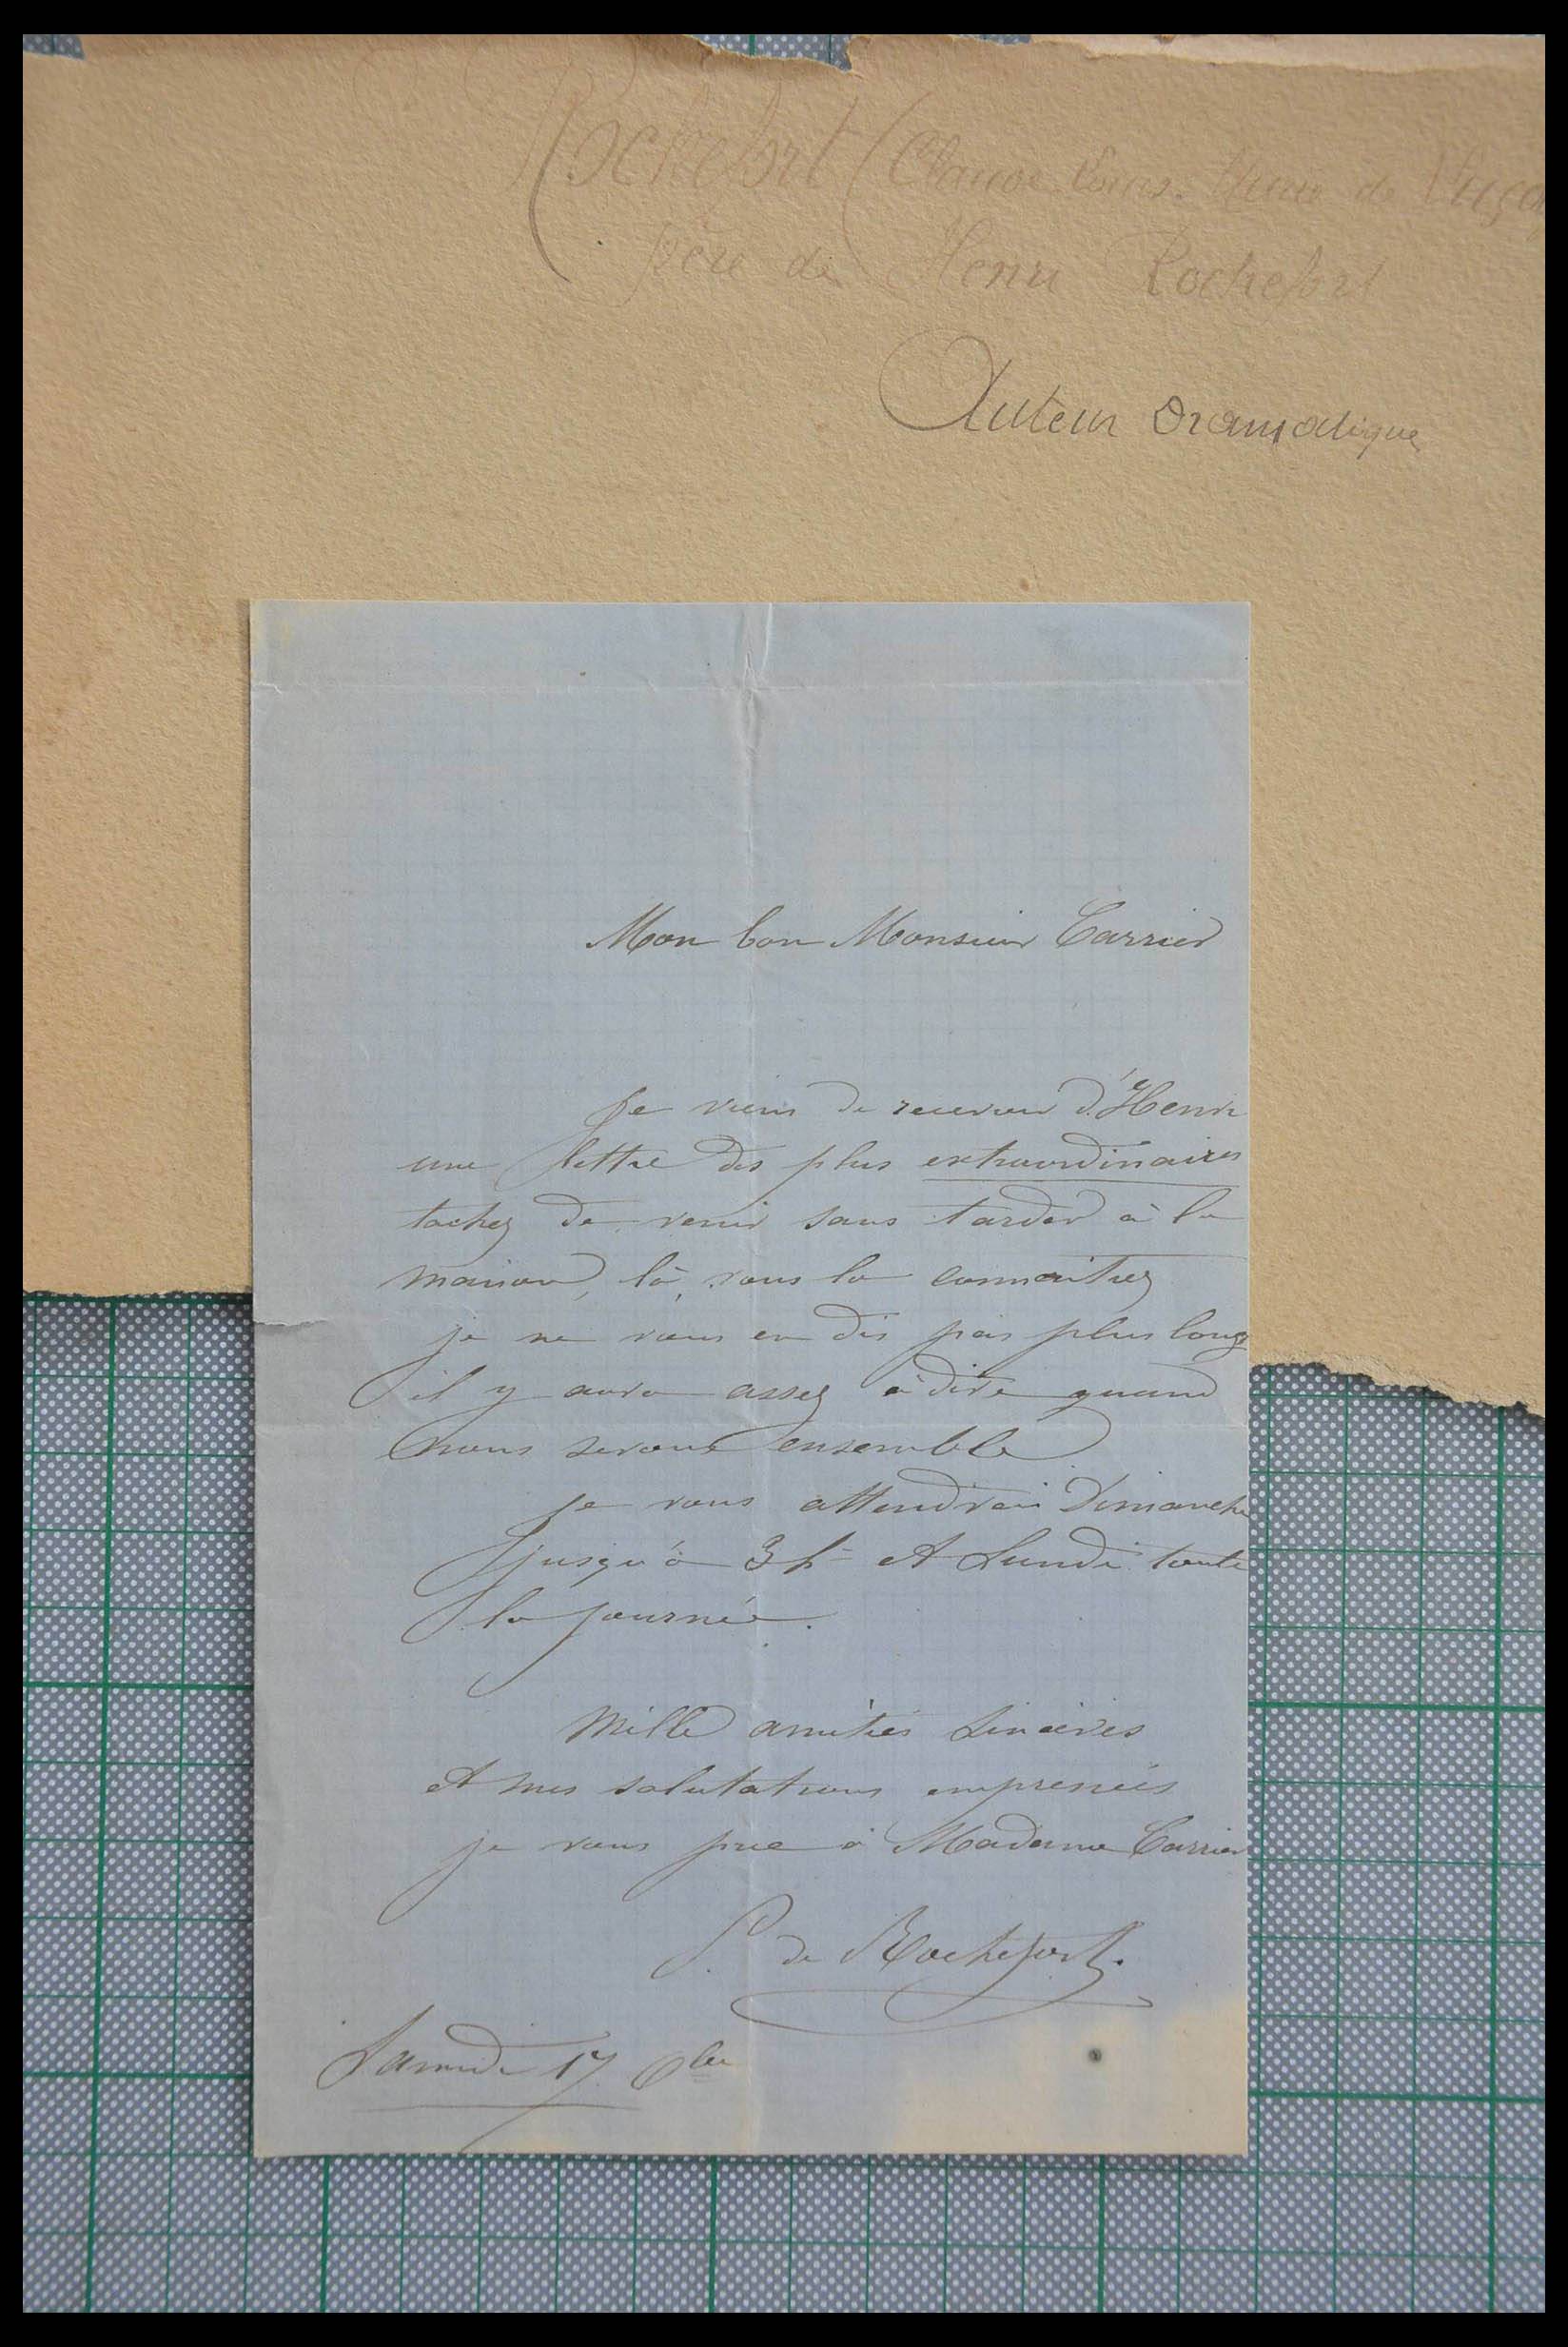 Rochefort (Claude Louis Marie de
père de Henri Rochefort
Auteur Dramatique
Mon bon Monsieur Carrier
Je viens de recevoir d'Henri
une lettre des plus extraordinaires
tachez de venir sans tarder à la
maison, là, vous la connaitrez
je ne vous en dis pas plus long
il y aura assez à dire quand
nous serons ensemble
je vous attendrai Dimanche
jusqu'à 3 h et Lundi toute
la journée.
Mille amitiés sincères
et mes salutations empressées
je vous prie à Madame Carrier
de Rochefort.
Samedi 17